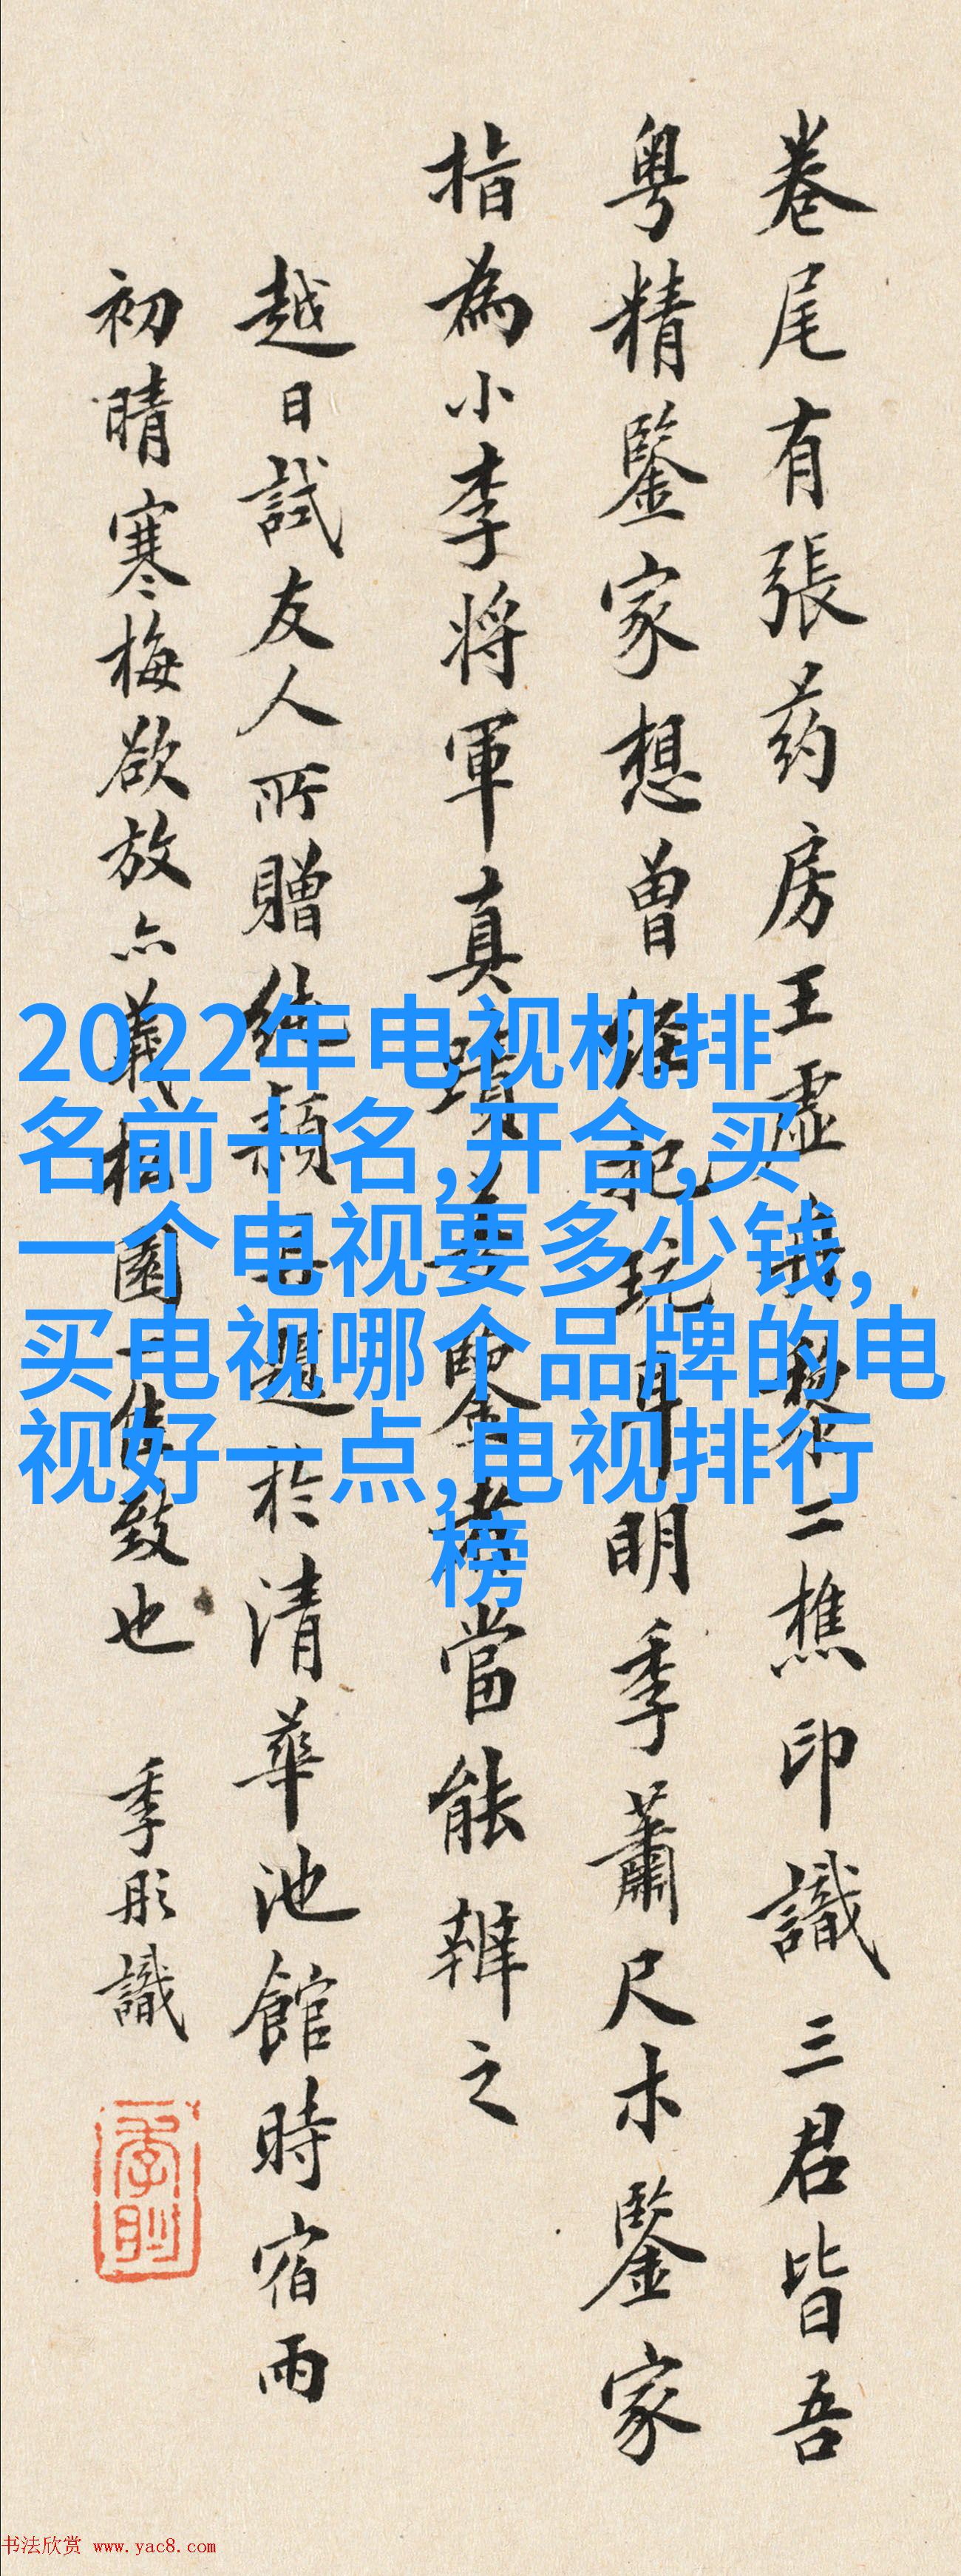 卷尾有張药房王虚黎二樵印識三君皆吾
粤精鑒家想曾經把玩耳明季蕭尺木鑒家
指為小李将軍真蹟鑒者當能辨之
越日試友人所贈純題於清華池館時宿雨
初晴寒梅欲放亦園一佳致也 季彤識
2022年电视机排
名前十名,开合,买
一个电视要多少钱,
买电视哪个品牌的电
视好一点,电视排行
榜
书法欣赏 www.yac8.com